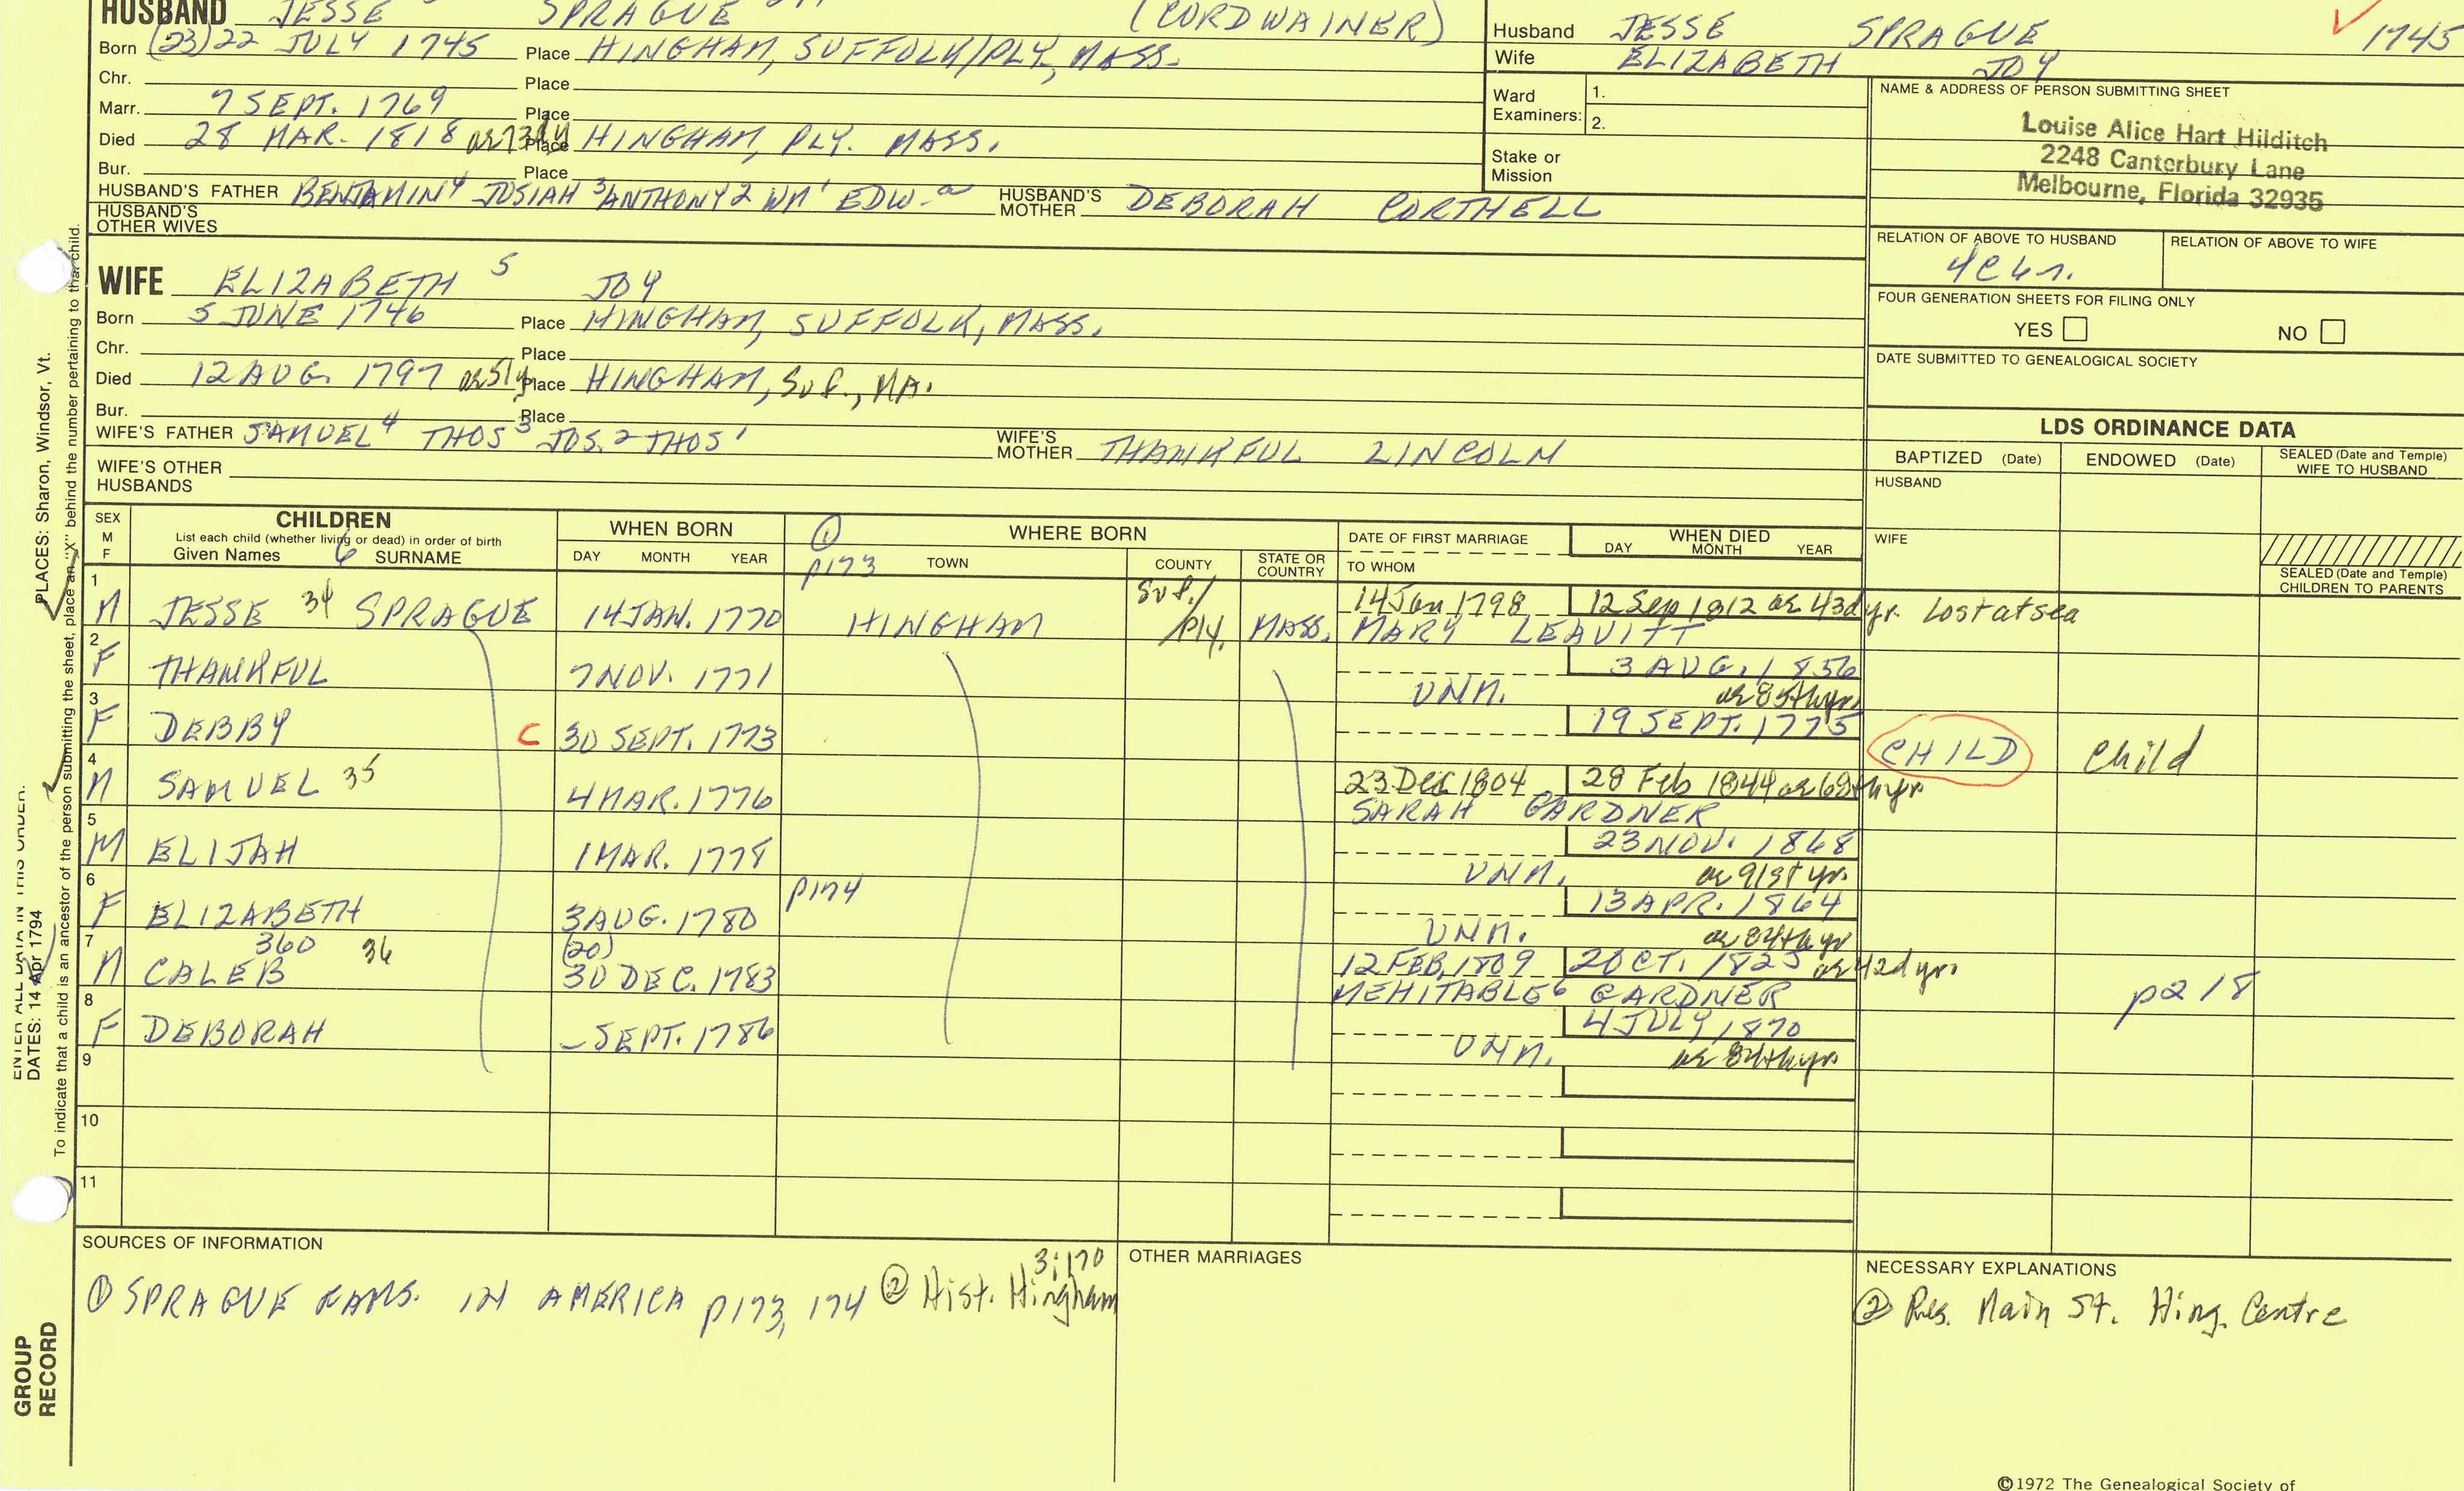 HUSBAND JESSE SPRAGUE (CORDWAINER)
Born (23) 22 JULY 1745 Place HINGHAM, SUFFOLK/PLY., MASS.
Chr. Place
Marr. 7 SEPT. 1769 Place
Died 28 MAR. 1818 ae 73d y Place HINGHAM, PLY. MASS.
Bur. Place
HUSBAND'S FATHER BENJAMIN4 JOSIAH3 ANTHONY2 WM1 EDW. a HUSBAND'S MOTHER DEBORAH CORTHELL
HUSBAND'S OTHER WIVES
Husband JESSE SPRAGUE 1745
Wife ELIZABETH JOY
Ward Examiners: 1.
2.
Stake or Mission
NAME & ADDRESS OF PERSON SUBMITTING SHEET
Louise Alice Hart Hilditch
2248 Canterbury Lane
Melbourne, Florida 32935
RELATION OF ABOVE TO HUSBAND RELATION OF ABOVE TO WIFE
FOUR GENERATION SHEETS FOR FILING ONLY
YES NO
DATE SUBMITTED TO GENEALOGICAL SOCIETY
WIFE ELIZABETH 5 JOY
Born 5 JUNE 1746 Place HINGHAM, SUFFOLK, MASS.
Chr. Place
Died 12 AUG. 1797 ae 51y Place HINGHAM, Suf., MA.
Bur. Place
WIFE'S FATHER SAMUEL4 THOS3 JOS.2 THOS1 WIFE'S MOTHER THANKFUL LINCOLN
WIFE'S OTHER HUSBANDS
LDS ORDINANCE DATA
BAPTIZED (Date) ENDOWED (Date) SEALED (Date and Temple) WIFE TO HUSBAND
HUSBAND
WIFE
SEALED (Date and Temple) CHILDREN TO PARENTS
SEX M F CHILDREN WHEN BORN ① WHERE BORN DATE OF FIRST MARRIAGE WHEN DIED
List each child (whether living or dead) in order of birth
Given Names 6 SURNAME DAY MONTH YEAR p173 TOWN COUNTY STATE OR COUNTRY TO WHOM DAY MONTH YEAR
1 M JESSE 34 SPRAGUE 14 JAN. 1770 HINGHAM Suf./Ply. MASS. 14 Jan 1798 12 Sep 1812 ae 43d yr. Lost at sea
MARY LEAVITT
2 F THANKFUL 7 NOV. 1771 3 AUG. 1856
UNM. ae 85th yr
3 F DEBBY C 30 SEPT. 1773 19 SEPT. 1775 CHILD Child
4 M SAMUEL 35 4 MAR. 1776 23 Dec 1804 28 Feb 1844 ae 68th yr
SARAH GARDNER
5 M ELIJAH 1 MAR. 1778 23 NOV. 1868
UNM. ae 91st yr.
6 F ELIZABETH 3 AUG. 1780 p174 13 APR. 1864
UNM. ae 84th yr
7 M CALEB 360 36 (20) 30 DEC. 1783 12 FEB. 1809 2 OCT. 1825 ae 42d yr.
MEHITABLE6 GARDNER p218
8 F DEBORAH – SEPT. 1786 4 JULY 1870
UNM. ae 84th yr
9
10
11
SOURCES OF INFORMATION
① SPRAGUE FAMS. IN AMERICA p173, 174 ② Hist. Hingham 3:170
OTHER MARRIAGES
NECESSARY EXPLANATIONS
② Res. Main St. Hing. Centre
©1972 The Genealogical Society of
PLACES: Sharon, Windsor, Vt.
ENTER ALL DATA IN THIS ORDER:
DATES: 14 Apr 1794
To indicate that a child is an ancestor of the person submitting the sheet, place an "X" behind the number pertaining to that child.
GROUP RECORD